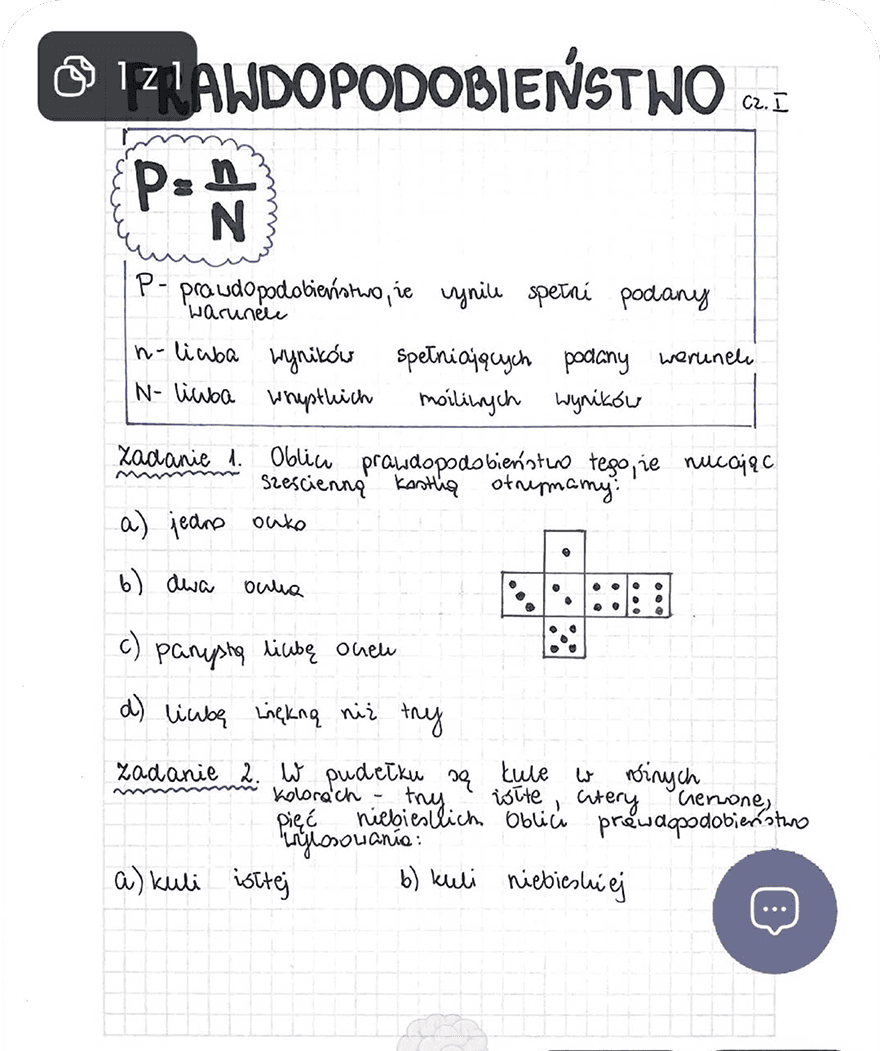 1 z 1
PRAWDOPODOBIEŃSTWO cz. I
P = n/N
P - prawdopodobieństwo, że wynik spełni podany
warunek
n - liczba wyników spełniających podany warunek
N - liczba wszystkich możliwych wyników
Zadanie 1. Oblicz prawdopodobieństwo tego, że rzucając
sześcienną kostką otrzymamy:
a) jedno oczko
b) dwa oczka
c) parzystą liczbę oczek
d) liczbę większą niż trzy
Zadanie 2. W pudełku są kule w różnych
kolorach - trzy żółte, cztery czerwone,
pięć niebieskich. Oblicz prawdopodobieństwo
wylosowania:
a) kuli żółtej b) kuli niebieskiej